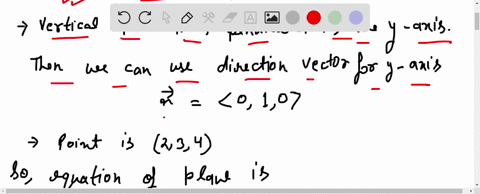 → Vertical
the y-axis.
Then we can use direction vector for y-axis
= <0,1,0>
→ Point is (2,3,4)
So, equation of plane is